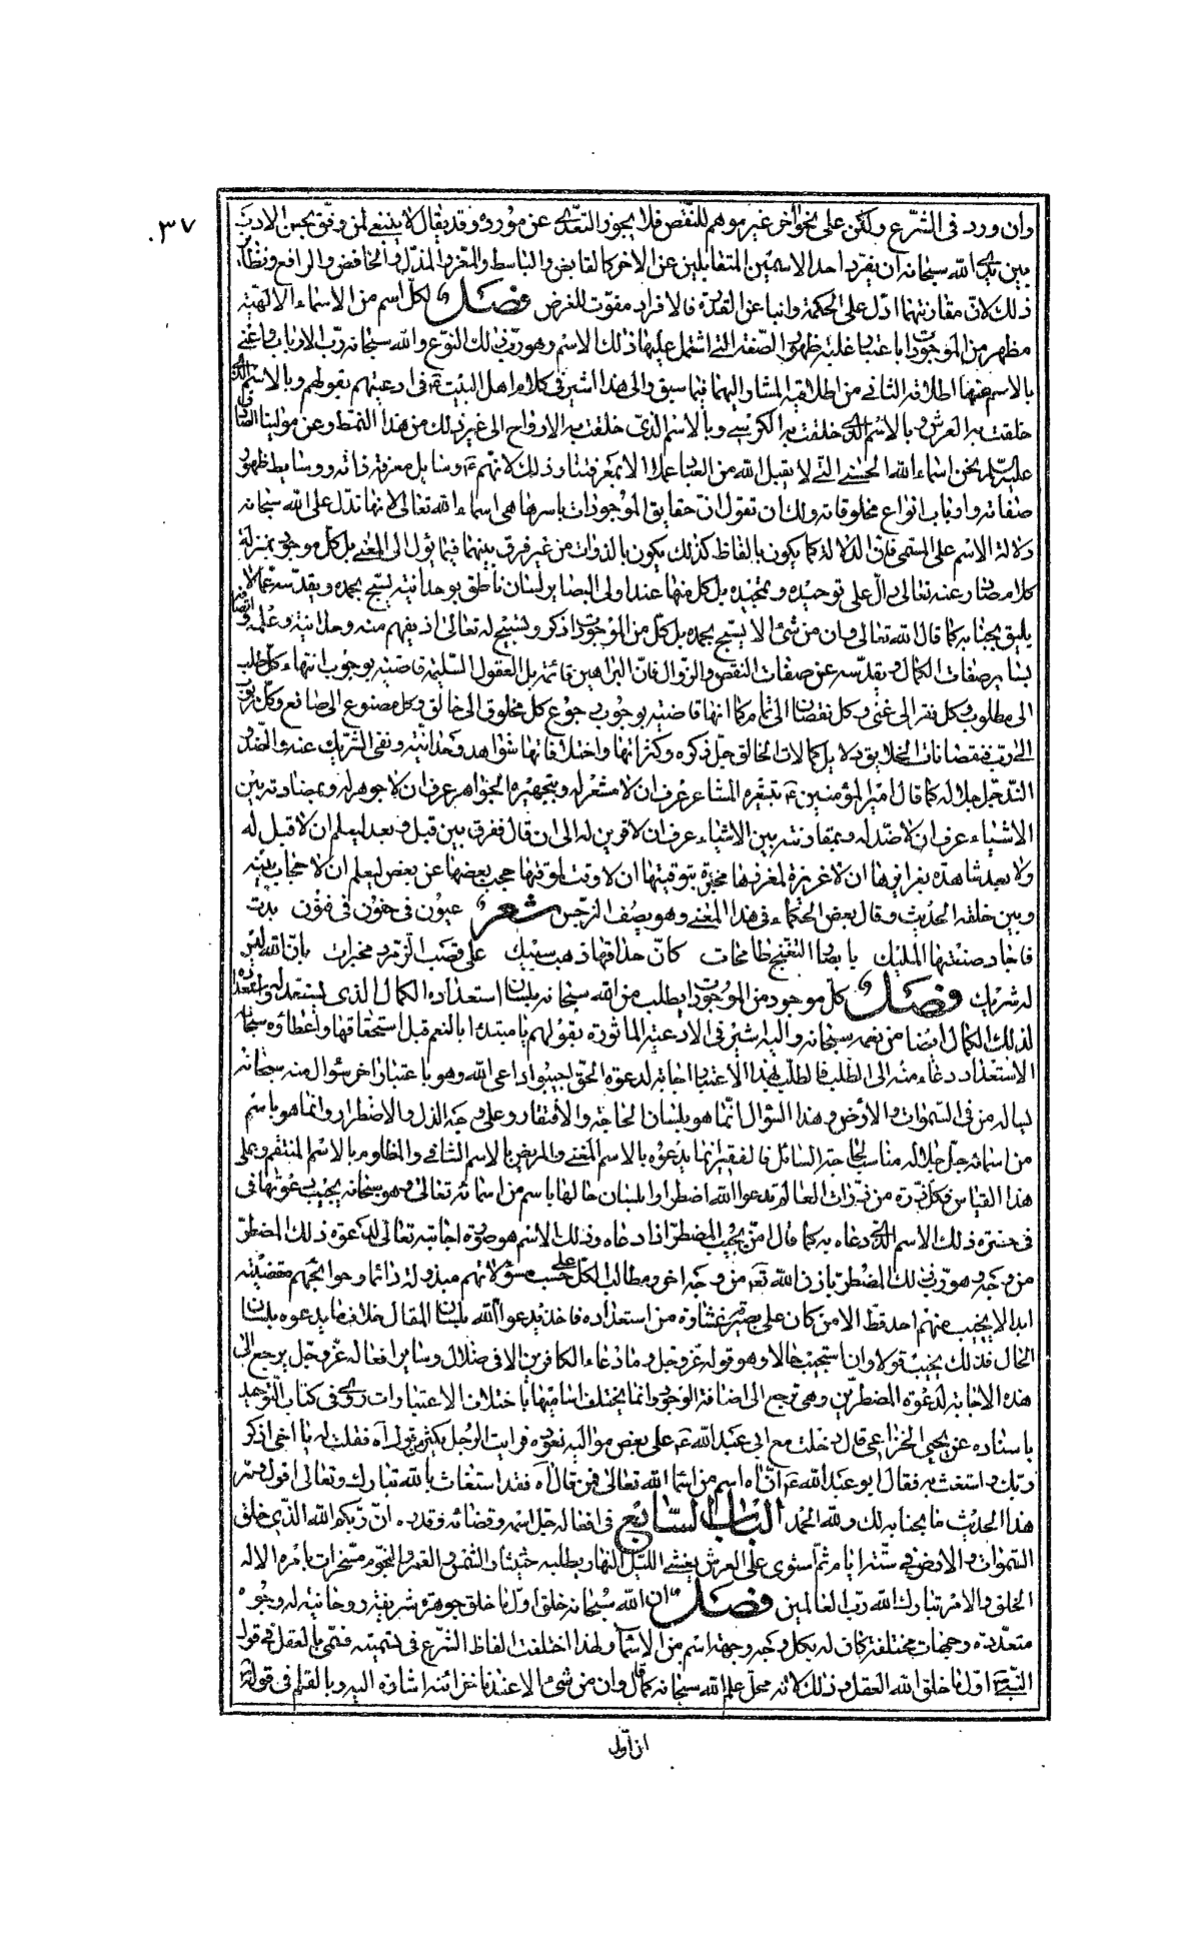 ٣٧
وان ورد فى الشّرع ولكن على نحو اخر غير موهم للنّقص فلا يجوز التعدّى عن مورده وقد يقال لا ينبغى لمن وفّق بحسن الادب
بين يدى الله سبحانه ان يفرد احد الاسمين المتقابلين عن الاخر كالقابض والباسط والمعزّ والمذلّ والخافض والرافع ونظاير
ذلك لانّ مقارنتهما ادلّ على الحكمة وانبأ عن القدرة فالافراد مفوّت للغرض فصل لكلّ اسم من الاسماء الالهيّة
مظهر من الموجودات باعتبار غلبة ظهور الصّفة التى اشتمل عليها ذلك الاسم وهو ربّ ذلك النّوع والله سبحانه ربّ الارباب ونعنى
بالاسم ههنا اطلاقه الثانى من اطلاقيه المشار اليهما فيما سبق والى هذا اشير فى كلام اهل البيت ع فى ادعيتهم بقولهم وبالاسم الذى
خلقت به العرش وبالاسم الذى خلقت به الكرسى وبالاسم الذى خلقت به الارواح الى غير ذلك من هذا النّمط وعن مولينا الصّادق
عليه السّلم نحن اسماء الله الحسنى التى لا يقبل الله من العباد عملا الا بمعرفتنا وذلك لانّهم ع وسايل معرفة ذاته ووسايط ظهور
صفاته وارباب انواع مخلوقاته ولك ان تقول انّ حقايق الموجودات باسرها هى اسماء الله تعالى لانها تدلّ على الله سبحانه
دلالة الاسم على المسمى فانّ الدلالة كما يكون بالفاظ كذلك يكون بالذوات من غير فرق بينهما فيما يئول الى المعنى بل كلّ موجود بمنزلة
كلام صادر عنه تعالى دالّ على توحيده وتمجيده بل كل منها عند اولى البصاير لسان ناطق بوحدانيّته يسبّح بحمده ويقدّسه عمّا لا
يليق بجنابه كما قال الله تعالى وان من شئ الا يسبّح بحمده بل كلّ من الموجودات ذكر وتسبيح له تعالى اذ يفهم منه وحدانيته وعلمه واتّصافه
بساير صفات الكمال وتقدّسه عن صفات النقص والزّوال فانّ البراهين قائمة بل العقول السّليمة قاضية بوجوب انتهاء كلّ طلب
الى مطلوب وكل فقر الى غنى وكل نقصان الى تمام كما انها قاضية بوجوب رجوع كل مخلوق الى خالق وكل مصنوع الى صانع وكل مربوب
الى ربّ فنقصانات الخلايق دلايل كمالات الخالق جلّ ذكره وكثراتها واختلافاتها شواهد وحدانيّته ونفى الشّريك عنه والضدّ و
النّد جلّ جلاله كما قال امير المؤمنين ع بتشعيره المشاعر عرف ان لا مشعر له وبتجهيره الجواهر عرف ان لا جوهر له وبمضادته بين
الاشياء عرف ان لا ضدّ له وبمقارنته بين الاشياء عرف ان لا قرين له الى ان قال ففرق بين قبل وبعد ليعلم ان لا قبل له
ولا بعد شاهدة بغرايزها ان لا غريزة لمغرزها مخبرة بتوقيتها ان لا وقت لموقتها حجب بعضها عن بعض ليعلم ان لا حجاب بينه
وبين خلقه الحديث وقال بعض الحكماء فى هذا المعنى وهو يصف النرّجس شعر عيون فى جفون فى فنون بدت
فاجاد صنعتها المليك بابصار التغنّج طامحات كانّ حداقها ذهب سبيك على قصب الزّمرّد مخبرات بانّ الله ليس
له شريك فصل كلّ موجود من الموجودات يطلب من الله سبحانه بلسان استعداده الكمال الذى يستعد له واستعداده
لذلك الكمال ايضا من نعمه سبحانه واليه اشير فى الادعية الماثورة بقولهم يا مبتدا بالنعم قبل استحقاقها واعطاؤه سبحانه
الاستعداد دعاء منه الى الطلب فالطلب بهذا الاعتبار اجابة لدعوة الحق اجيبوا داعى الله وهو باعتبار اخر سؤال منه سبحانه
يساله من فى السّموات والارض وهذا السؤال انّما هو بلسان الحاجة والافتقار وعلى وجه الذل والاضطرار وانما هو باسم
من اسمائه جلّ جلاله مناسب لحاجة السائل فالفقير انما يدعوه بالاسم المغنى والمريض بالاسم الشافى والمظلوم بالاسم المنتقم وعلى
هذا القياس فكل ذرّة من ذرّات العالم تدعوا الله اضطرارا بلسان حالها باسم من اسمائه تعالى وهو سبحانه يجيب دعوتها فى
فى حضرة ذلك الاسم الذى دعاه به كما قال امّن يجيب المضطرّ اذا دعاه وذلك الاسم هو صورة اجابته تعالى لدعوة ذلك المضطرّ
من وجه وهو ربّ ذلك المضطرّ باذن الله تع من وجه اخر ومطالب الكلّ على حسب مسؤلاتهم مبذولة دائما وحوائجهم مقضيّة
ابدا لا يخيب منهم احد قطّ الا من كان على بصيرته غشاوة من استعداده فاخذ يدعوا الله بلسان المقال خلاف ما يدعوه بلسان
الحال فذلك يخيب قولا وان استجيب حالا وهو قوله عزّ وجل وما دعاء الكافرين الا فى ضلال وساير افعاله عزّ وجل يرجع الى
هذه الاجابة لدعوة المضطرّين وهى ترجع الى افاضة الوجود وانما يختلف اساميها باختلاف الاعتبارات روى فى كتاب التّوحيد
باسناده عن يحيى الخزاعى قال دخلت مع ابى عبد الله ع على بعض مواليه نعوده فرايت الرجل يكثر من قول اه فقلت له يا اخى اذكر
ربّك واستغث به فقال ابو عبد الله ع انّ اه اسم من اسماء الله تعالى فمن قال اه فقد استغاث بالله تبارك وتعالى اقول وسر
هذا الحديث ما بيّناه لك ولله الحمد الباب السّابع فى افعاله جلّ اسمه وقضائه وقدره انّ ربّكم الله الّذى خلق
السّموات والارض فى ستّة ايام ثمّ استوى على العرش يغشى اللّيل النّهار يطلبه حثيثا والشّمس والقمر والنّجوم مسخّرات بامره الا له
الخلق والامر تبارك الله ربّ العالمين فصل انّ الله سبحانه خلق اوّل ما خلق جوهرة شريفة روحانيّة له وجوه
متعدّدة وجهات مختلفة كان له بكل وجه وجهة اسم من الاسماء ولهذا اختلفت الفاظ الشّرع فى تسميته فسمّى بالعقل فى قول
النّبى ص اوّل ما خلق الله العقل وذلك لانّه محلّ علم الله سبحانه كما قال وان من شئ الا عندنا خزائنه اشارة اليه وبالقلم فى قوله ص
ان اوّل